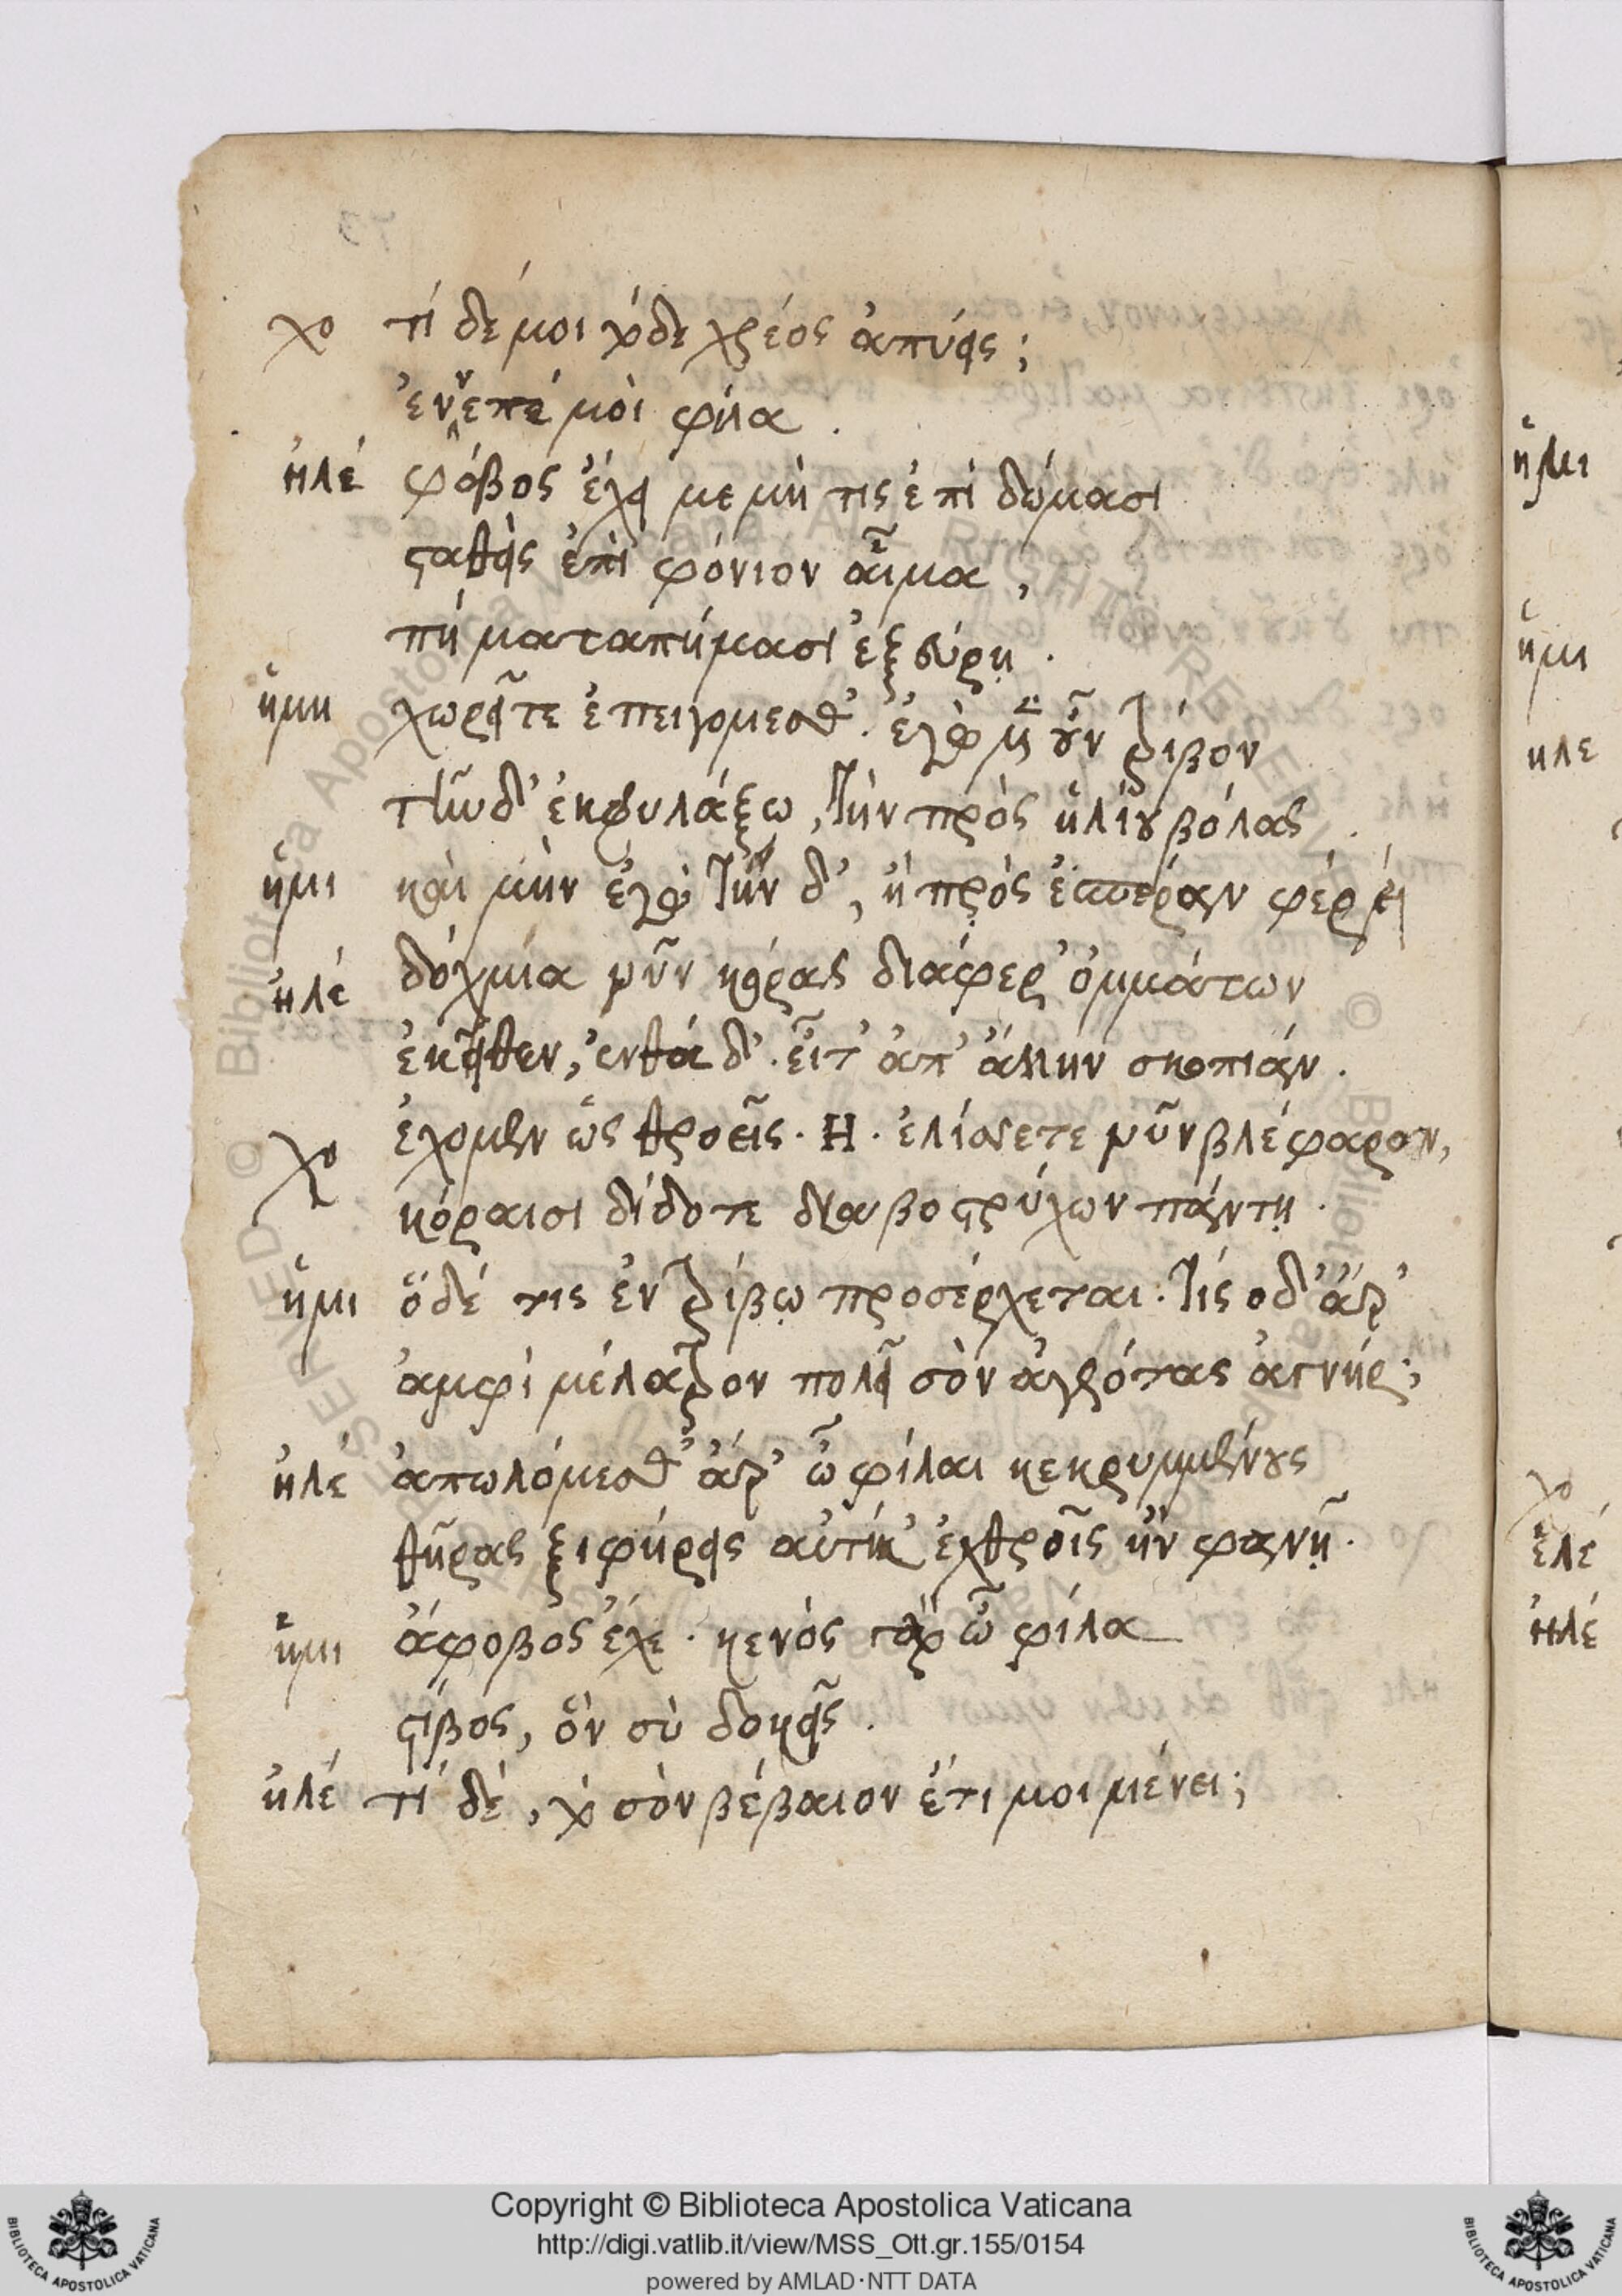 χο τί δέ μοι τόδε χρέος ἀπύεις ;
ἐνν̓επέ μοὶ φίλα .
ἠλέ φόβος ἔχει με μή τις ἐπὶ δώμασι
σταθεὶς ἐπὶ φόνιον αἷμα ,
πήματα πήμασι ἐξεύρῃ .
ἡμι χωρεῖτε ἐπειγομεσθ'. ἐγὼ μὲν οὖν τρίβον
τήνδ' ἐκφυλάξω , τὴν πρὸς ἡλίου βολάς .
ἡμι καὶ μὴν ἐγὼ τήνδ', ἣ πρὸς ἑσπέραν φέρει
ἠλέ δόχμια νῦν κόρας διάφερ' ὀμμάτων
ἐκεῖθεν , ἐνθάδ'. εἶτ' ἀπ' ἄλλην σκοπιάν .
χο ἔχομεν ὡς θροεῖς . Η . ἑλίσσετε νῦν βλέφαρον ,
κόραισι δίδοτε διὰ βοστρύχων πάντῃ .
ἡμι ὅδέ τις ἐν τρίβῳ προσέρχεται . τίς οδ' ἄρ'
ἀμφὶ μέλαθρον πολεῖ σὸν ἀγρότας ἀνήρ ;
ἠλέ ἀπωλόμεσθ' ἄρ' ὦ φίλαι κεκρυμμένους
θῆρας ξιφήρεις αὐτίκ' ἐχθροῖς ἢν φανῇ .
ἡμι ἄφοβος ἔχε . κενὸς γὰρ ὦ φίλα
στίβος , ὃν σὺ δοκεῖς .
ἠλέ τί δέ , τὸ σὸν βέβαιον ἔτι μοι μένει ;
ἡμι
ἡμι
ηλε
χο
ἐλέ
ἠλέ
Copyright © Biblioteca Apostolica Vaticana
http://digi.vatlib.it/view/MSS_Ott.gr.155/0154
powered by AMLAD·NTT DATA
BIBLIOTECA APOSTOLICA VATICANA
BIBLIOTECA APOSTOLICA VATICANA